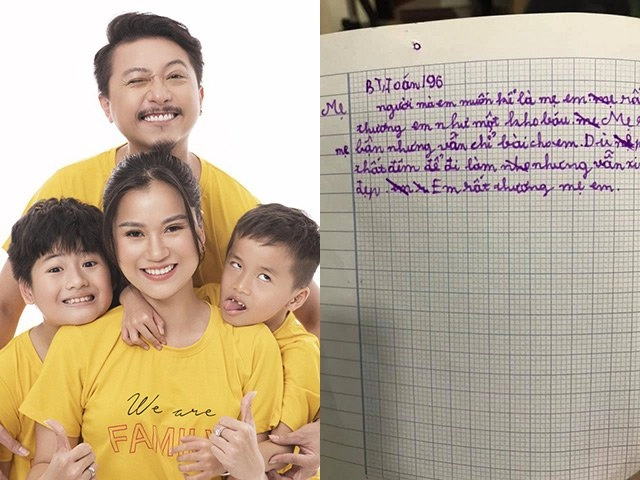 We are
FAMILY
BT Toán 196
Mẹ người mà em muốn kể là mẹ em. mẹ
thương em như một kho báu. Mẹ
mẹ bận nhưng vẫn chỉ bài cho em. Dù
thất đím để đi làm nhưng vẫn
đẹp. Em rất thương mẹ em.